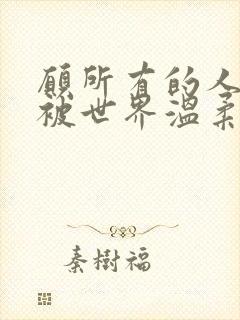 願所有的人
被世界溫柔
秦樹福